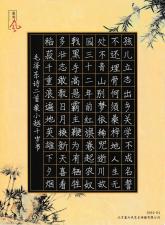 孩儿立志出乡关学不成名誓
不还埋骨何须桑梓地人生无
处不青山别梦依稀咒逝川故
园三十二年前红旗卷起农奴
戟黑手高悬霸主鞭为有牺牲
多壮志敢教日月换新天喜看
稻菽千重浪遍地英雄下夕烟
毛泽东诗二首